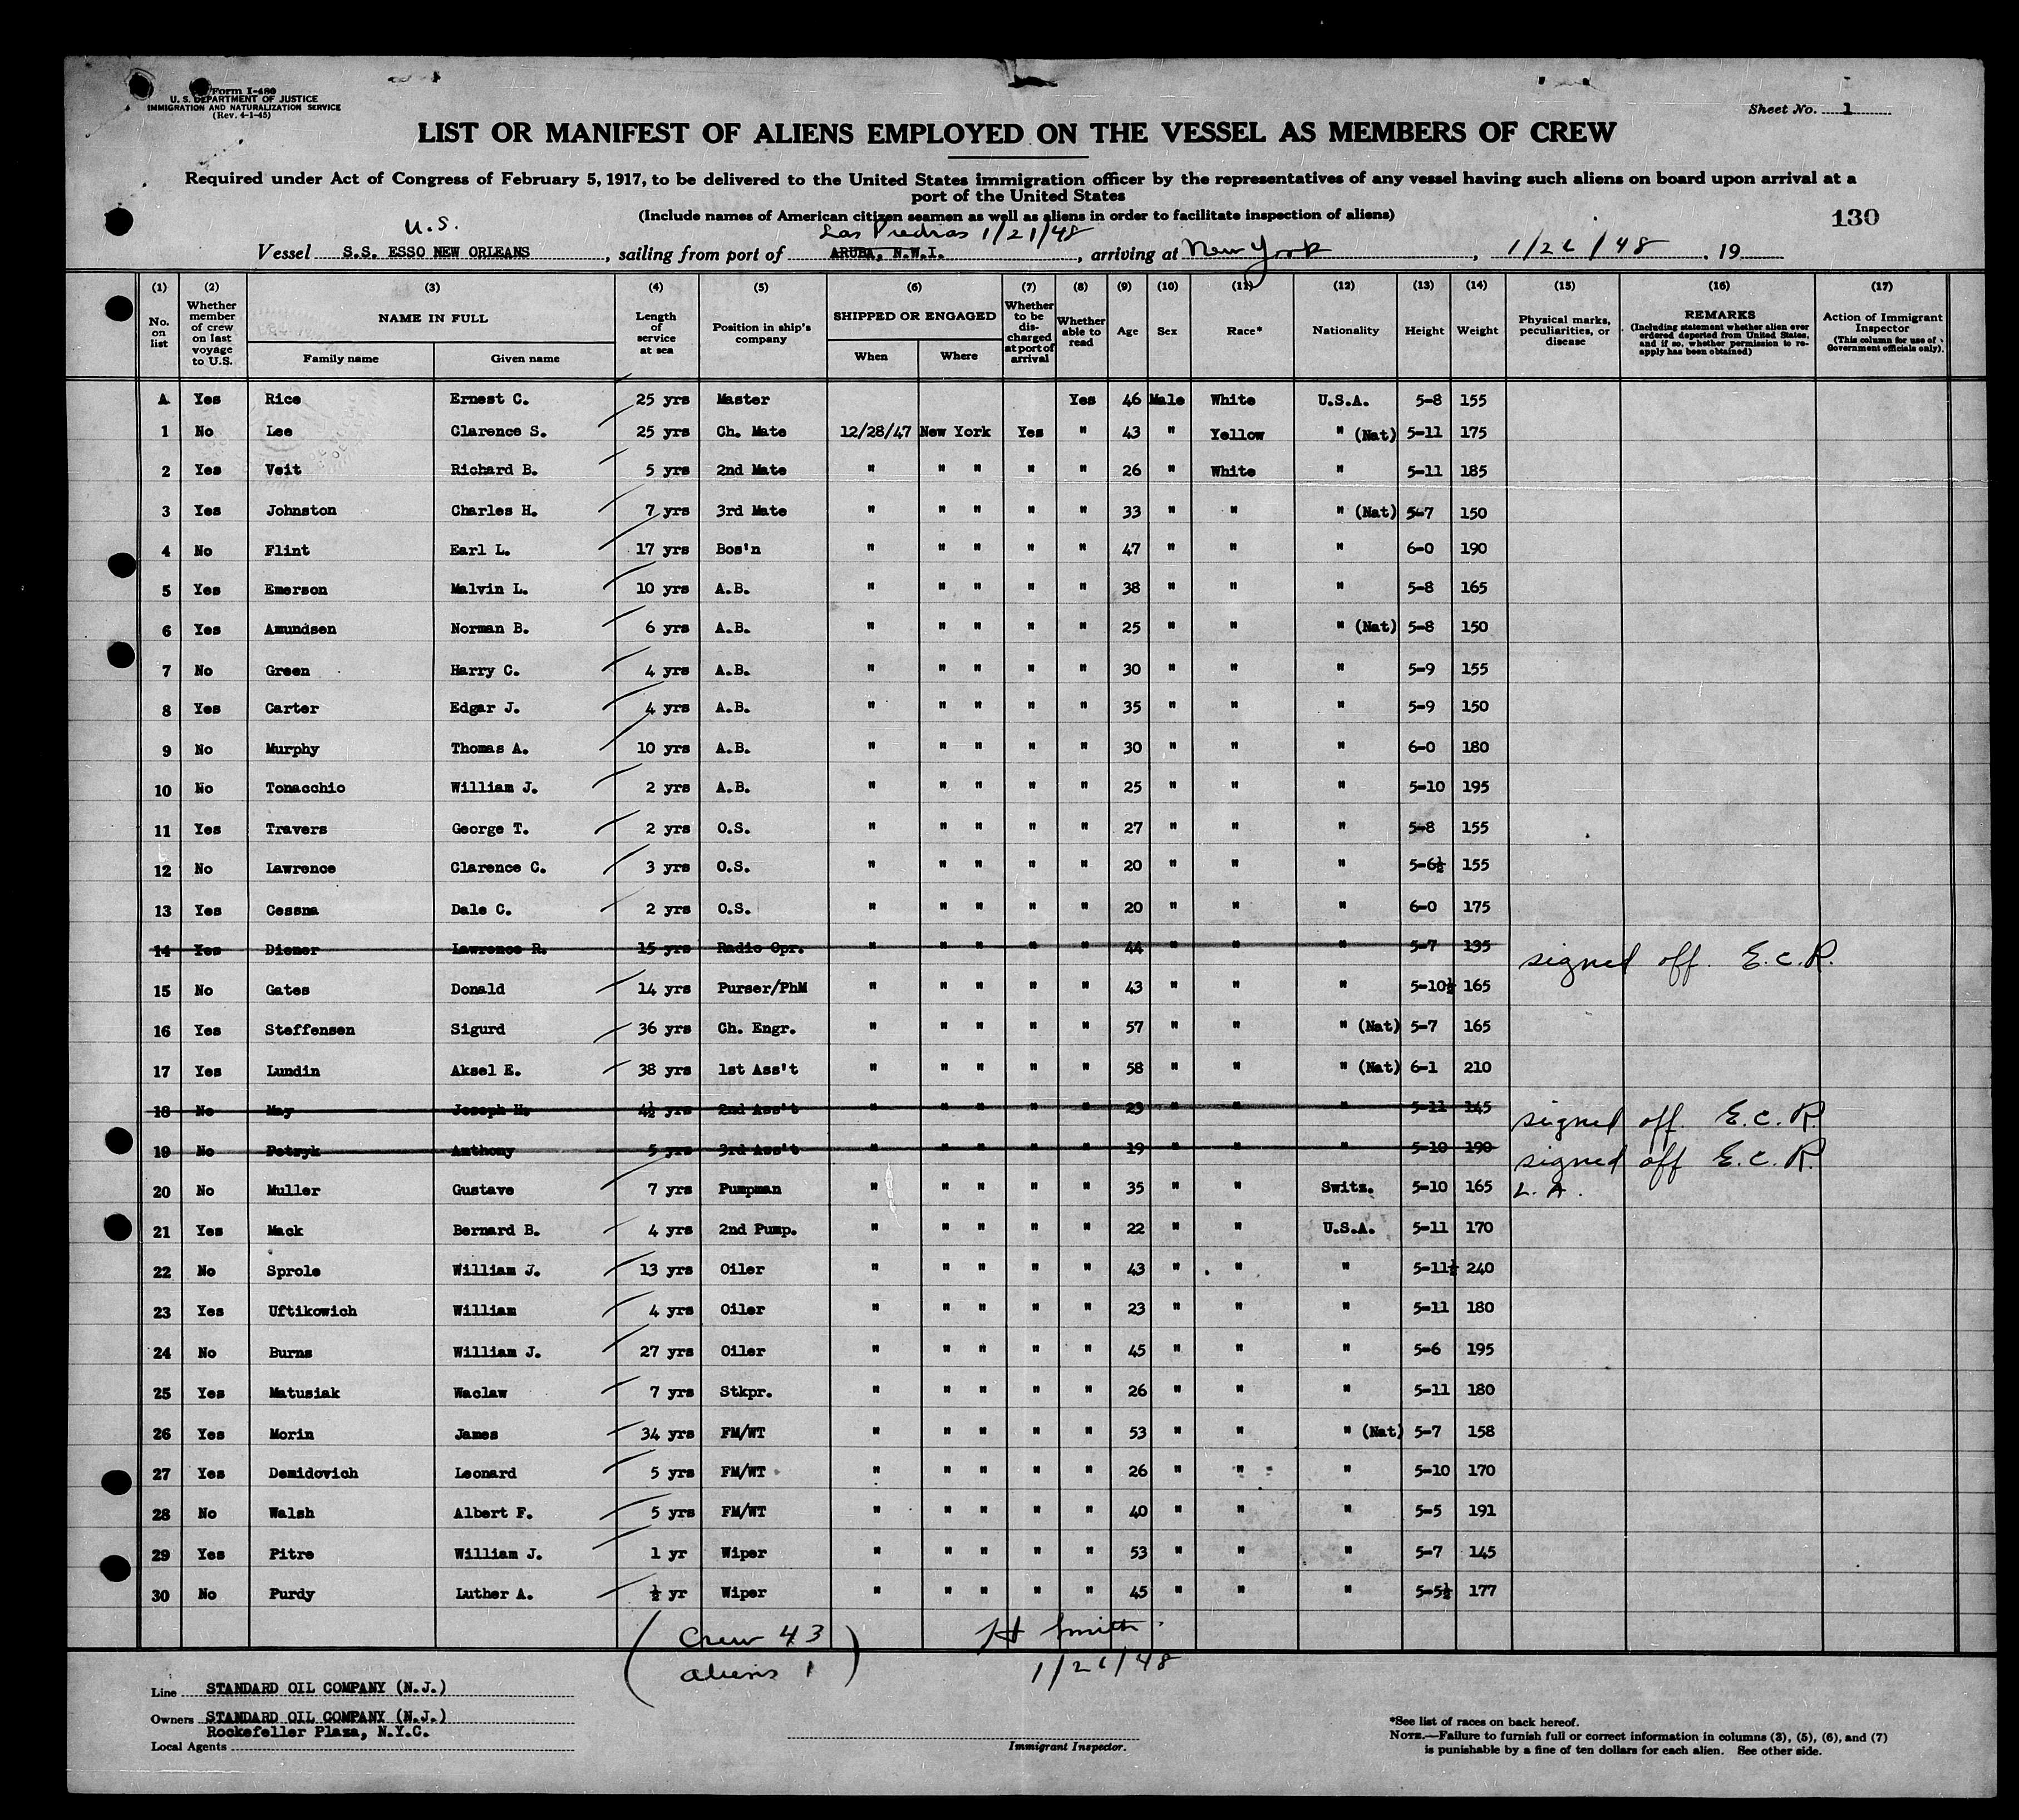 Form I-480
U. S. DEPARTMENT OF JUSTICE
IMMIGRATION AND NATURALIZATION SERVICE
(Rev. 4-1-45)
Sheet No. 1
LIST OR MANIFEST OF ALIENS EMPLOYED ON THE VESSEL AS MEMBERS OF CREW
Required under Act of Congress of February 5, 1917, to be delivered to the United States immigration officer by the representatives of any vessel having such aliens on board upon arrival at a
port of the United States
(Include names of American citizen seamen as well as aliens in order to facilitate inspection of aliens)
130
U.S. Las Piedras 1/21/48
Vessel S.S. ESSO NEW ORLEANS, sailing from port of ARUBA, N.W.I., arriving at New York, 1/26/48, 19
(1) (2) (3) (4) (5) (6) (7) (8) (9) (10) (11) (12) (13) (14) (15) (16) (17)
No. on list
Whether member of crew on last voyage to U.S.
NAME IN FULL
Family name
Given name
Length of service at sea
Position in ship's company
SHIPPED OR ENGAGED
When
Where
Whether to be discharged at port of arrival
Whether able to read
Age
Sex
Race*
Nationality
Height
Weight
Physical marks, peculiarities, or disease
REMARKS
(Including statement whether alien ever ordered deported from United States, and if so, whether permission to re-apply has been obtained)
Action of Immigrant Inspector
(This column for use of Government officials only).
A Yes Rice Ernest C. 25 yrs Master Yes 46 Male White U.S.A. 5-8 155
1 No Lee Clarence S. 25 yrs Ch. Mate 12/28/47 New York Yes " 43 " Yellow " (Nat) 5-11 175
2 Yes Veit Richard B. 5 yrs 2nd Mate " " " " " 26 " White " 5-11 185
3 Yes Johnston Charles H. 7 yrs 3rd Mate " " " " " 33 " " " (Nat) 5-7 150
4 No Flint Earl L. 17 yrs Bos'n " " " " " 47 " " " 6-0 190
5 Yes Emerson Malvin L. 10 yrs A.B. " " " " " 38 " " " 5-8 165
6 Yes Amundsen Norman B. 6 yrs A.B. " " " " " 25 " " " (Nat) 5-8 150
7 No Green Harry C. 4 yrs A.B. " " " " " 30 " " " 5-9 155
8 Yes Carter Edgar J. 4 yrs A.B. " " " " " 35 " " " 5-9 150
9 No Murphy Thomas A. 10 yrs A.B. " " " " " 30 " " " 6-0 180
10 No Tonacchio William J. 2 yrs A.B. " " " " " 25 " " " 5-10 195
11 Yes Travers George T. 2 yrs O.S. " " " " " 27 " " " 5-8 155
12 No Lawrence Clarence C. 3 yrs O.S. " " " " " 20 " " " 5-6½ 155
13 Yes Cessna Dale C. 2 yrs O.S. " " " " " 20 " " " 6-0 175
14 Yes Diener Lawrence R. 15 yrs Radio Opr. " " " " " 44 " " " 5-7 135 signed off. E.C.R.
15 No Gates Donald 14 yrs Purser/PhM " " " " " 43 " " " 5-10½ 165
16 Yes Steffensen Sigurd 36 yrs Ch. Engr. " " " " " 57 " " " (Nat) 5-7 165
17 Yes Lundin Aksel E. 38 yrs 1st Ass't " " " " " 58 " " " (Nat) 6-1 210
18 No May Joseph H. 4½ yrs 2nd Ass't " " " " " 23 " " " 5-11 145 signed off. E.C.R.
19 No Petryk Anthony 5 yrs 3rd Ass't " " " " " 19 " " " 5-10 190 signed off E.C.R.
20 No Muller Gustave 7 yrs Pumpman " " " " " 35 " " Switz. 5-10 165 L.A.
21 Yes Mack Bernard B. 4 yrs 2nd Pump. " " " " " 22 " " U.S.A. 5-11 170
22 No Sprole William J. 13 yrs Oiler " " " " " 43 " " " 5-11½ 240
23 Yes Uftikowich William 4 yrs Oiler " " " " " 23 " " " 5-11 180
24 No Burns William J. 27 yrs Oiler " " " " " 45 " " " 5-6 195
25 Yes Matusiak Waclaw 7 yrs Stkpr. " " " " " 26 " " " 5-11 180
26 Yes Morin James 34 yrs FM/WT " " " " " 53 " " " (Nat) 5-7 158
27 Yes Demidovich Leonard 5 yrs FM/WT " " " " " 26 " " " 5-10 170
28 No Walsh Albert F. 5 yrs FM/WT " " " " " 40 " " " 5-5 191
29 Yes Pitre William J. 1 yr Wiper " " " " " 53 " " " 5-7 145
30 No Purdy Luther A. ½ yr Wiper " " " " " 45 " " " 5-5½ 177
(Crew 43 H Smith
aliens 1) 1/26/48
Line STANDARD OIL COMPANY (N.J.)
Owners STANDARD OIL COMPANY (N.J.)
Rockefeller Plaza, N.Y.C.
Local Agents
Immigrant Inspector.
*See list of races on back hereof.
NOTE.—Failure to furnish full or correct information in columns (3), (5), (6), and (7)
is punishable by a fine of ten dollars for each alien. See other side.